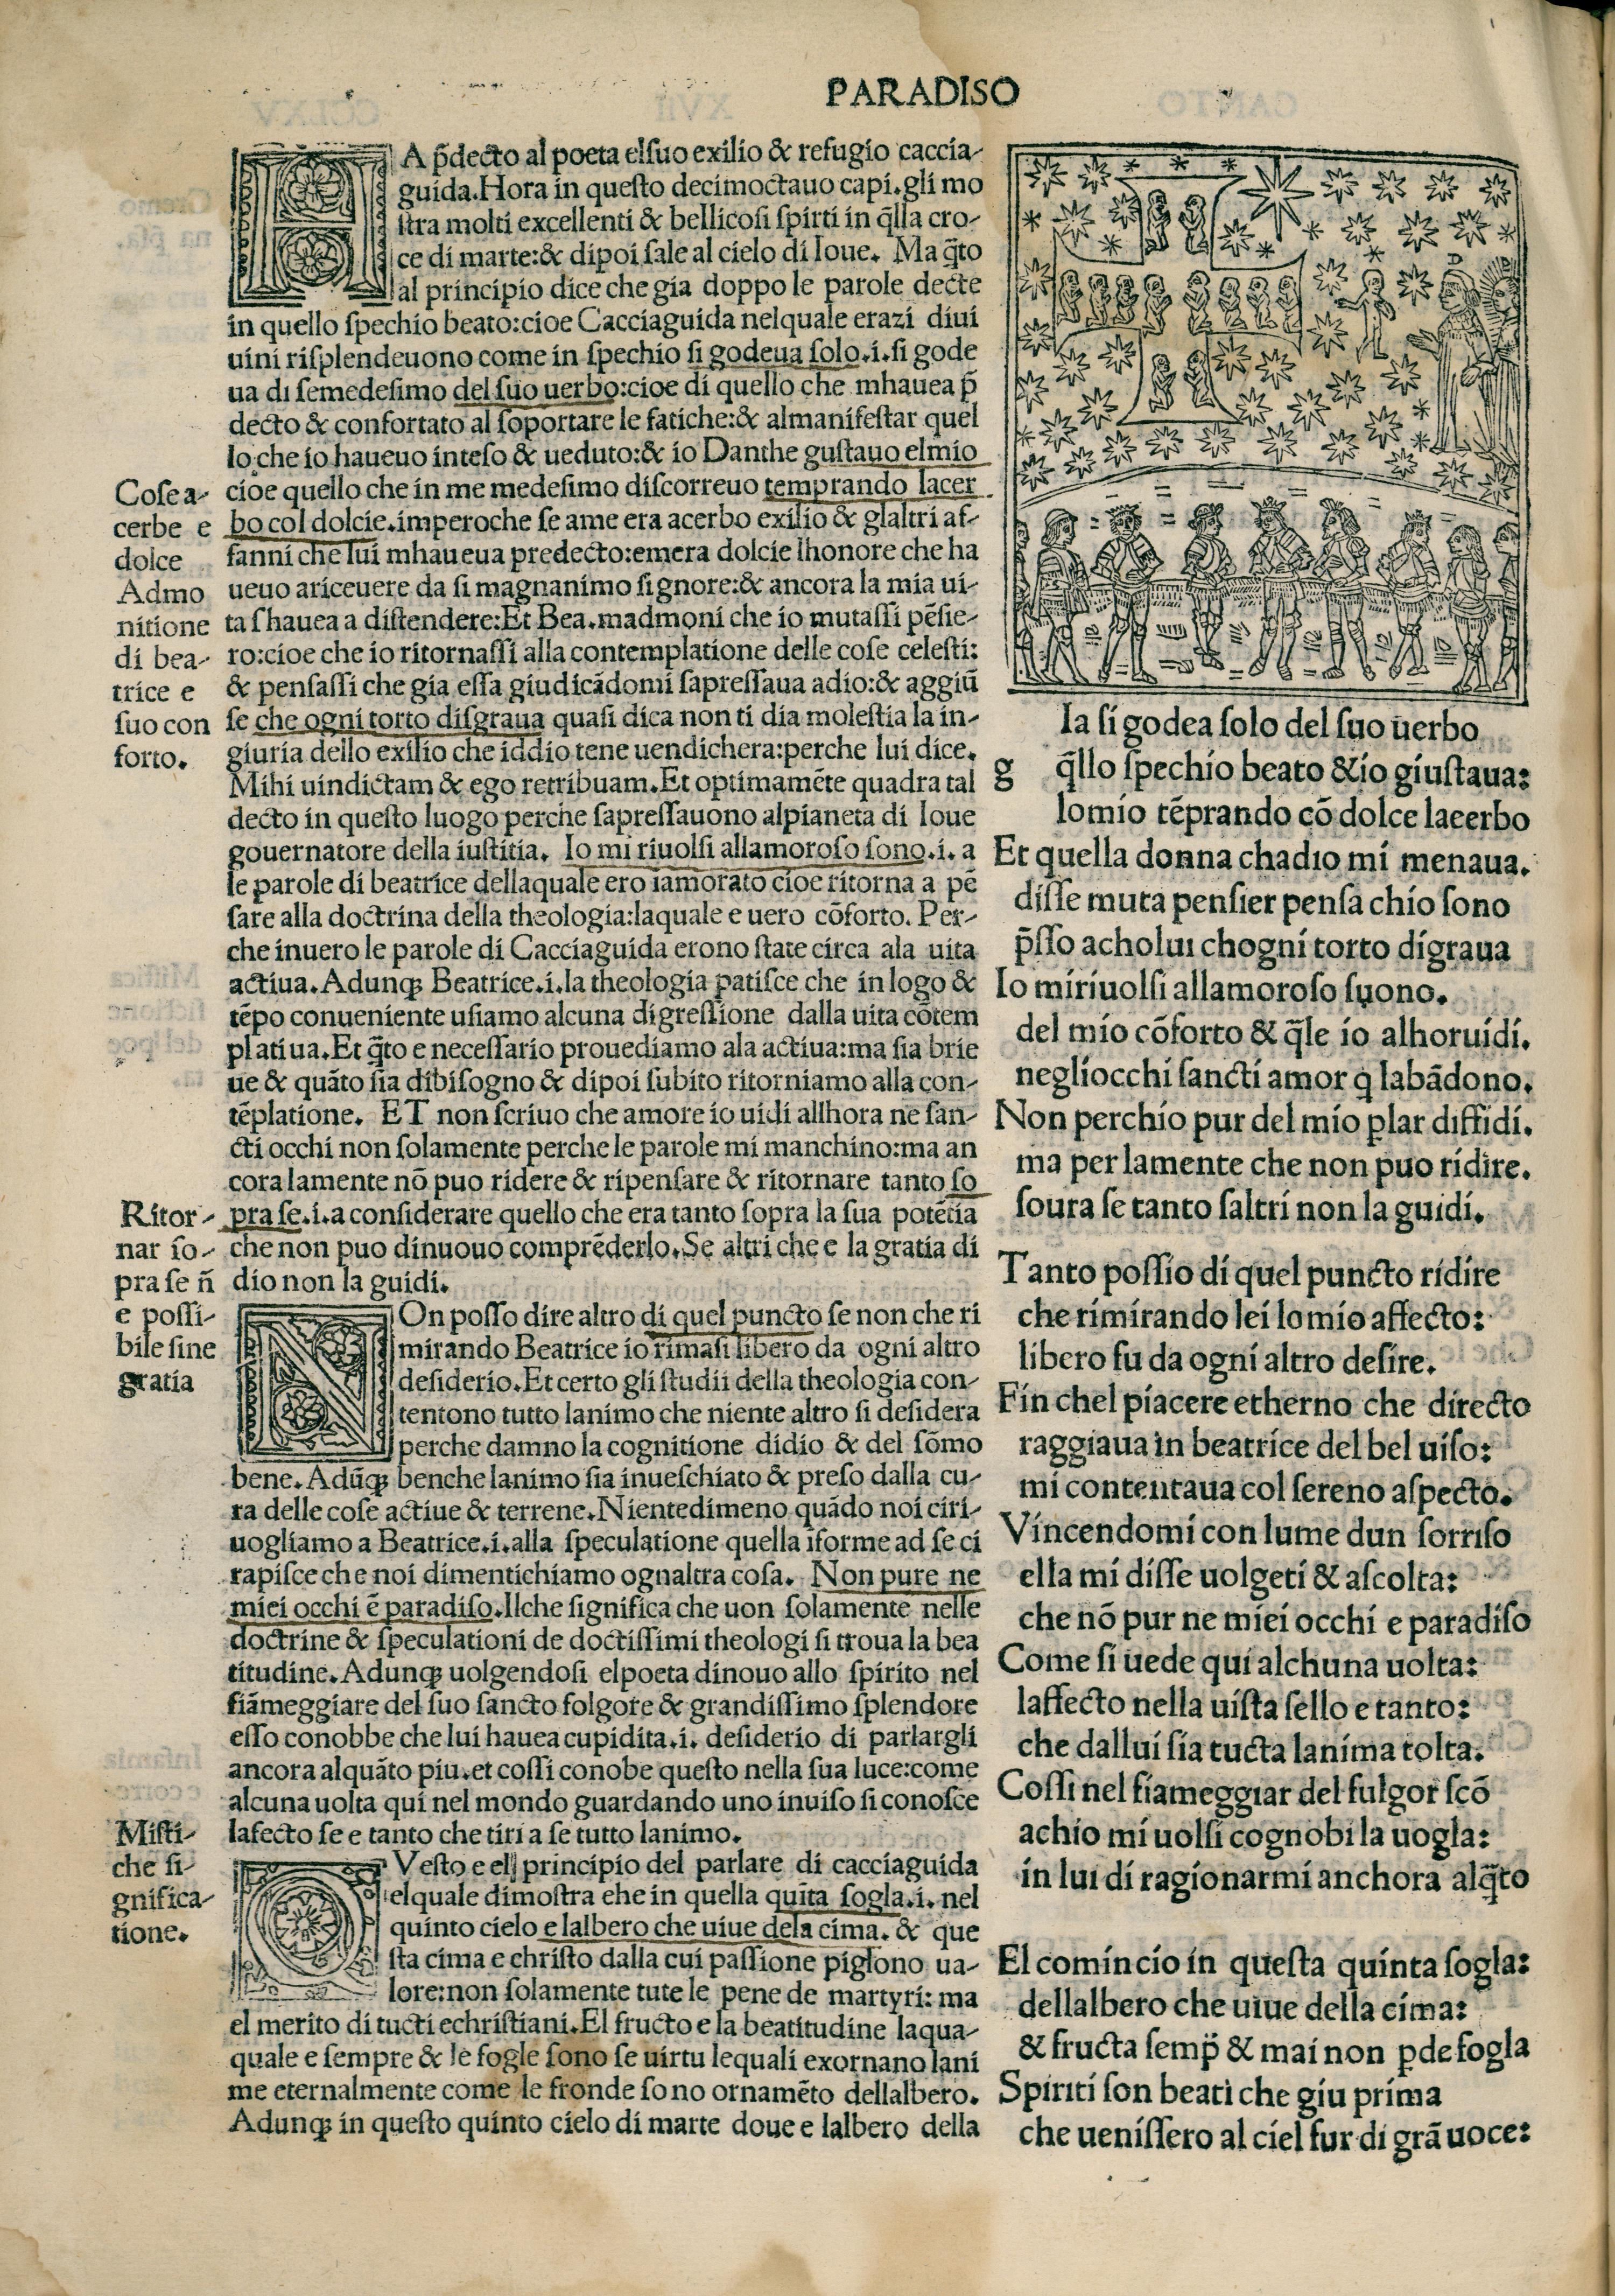 PARADISO
HA p̄decto al poeta elsuo exilio & refugio caccia-
guida. Hora in questo decimoctauo capi. gli mo
stra molti excellenti & bellicosi spirti in q̄lla cro-
ce di marte: & dipoi sale al cielo di Ioue. Ma q̄to
al principio dice che gia doppo le parole decte
in quello spechio beato: cioe Cacciaguida nelquale erazi diui
uini risplendeuono come in spechio si godeua solo .i. si gode
ua di semedesimo del suo uerbo: cioe di quello che mhauea p̄
decto & confortato al soportare le fatiche: & almanifestar quel
lo che io haueuo inteso & ueduto: & io Danthe gustauo elmio
cioe quello che in me medesimo discorreuo temprando lacer
bo col dolcie. imperoche se ame era acerbo exilio & glaltri af-
fanni che lui mhaueua predecto: emera dolcie lhonore che ha
ueuo ariceuere da si magnanimo signore: & ancora la mia ui-
ta shauea a distendere: Et Bea. madmoni che io mutassi pēsie-
ro: cioe che io ritornassi alla contemplatione delle cose celesti:
& pensassi che gia essa giudicādomi sapressaua adio: & aggiū
se che ogni torto disgraua quasi dica non ti dia molestia la in-
giuria dello exilio che iddio tene uendichera: perche lui dice.
Mihi uindictam & ego retribuam. Et optimamēte quadra tal
decto in questo luogo perche sapressauono alpianeta di Ioue
gouernatore della iustitia. Io mi riuolsi allamoroso sono .i. a
le parole di beatrice dellaquale ero iamorato cioe ritorna a pē
sare alla doctrina della theologia: laquale e uero cōforto. Per-
che inuero le parole di Cacciaguida erono state circa ala uita
actiua. Adunqꝫ Beatrice .i. la theologia patisce che in logo &
tēpo conueniente usiamo alcuna digressione dalla uita cōtem
platiua. Et q̄to e necessario prouediamo ala actiua: ma sia brie
ue & quāto sia dibisogno & dipoi subito ritorniamo alla con-
tēplatione. ET non scriuo che amore io uidi allhora ne san-
cti occhi non solamente perche le parole mi manchino: ma an
cora lamente nō puo ridere & ripensare & ritornare tanto so
pra se .i. a considerare quello che era tanto sopra la sua potētia
che non puo dinuouo comprēderlo. Se altri che e la gratia di
dio non la guidi.
NOn posso dire altro di quel puncto se non che ri
mirando Beatrice io rimasi libero da ogni altro
desiderio. Et certo gli studii della theologia con-
tentono tutto lanimo che niente altro si desidera
perche damno la cognitione didio & del sōmo
bene. Adūqꝫ benche lanimo sia inueschiato & preso dalla cu-
ra delle cose actiue & terrene. Nientedimeno quādo noi ciri-
uogliamo a Beatrice .i. alla speculatione quella īforme ad se ci
rapisce che noi dimentichiamo ognaltra cosa. Non pure ne
miei occhi ē paradiso. Ilche significa che uon solamente nelle
doctrine & speculationi de doctissimi theologi si troua la bea
titudine. Adunqꝫ uolgendosi elpoeta dinouo allo spirito nel
fiāmeggiare del suo sancto folgore & grandissimo splendore
esso conobbe che lui hauea cupidita .i. desiderio di parlargli
ancora alquāto piu. et cossi conobe questo nella sua luce: come
alcuna uolta qui nel mondo guardando uno inuiso si conosce
lafecto se e tanto che tiri a se tutto lanimo.
QVesto e el principio del parlare di cacciaguida
elquale dimostra ehe in quella quīta sogla .i. nel
quinto cielo e lalbero che uiue dela cima. & que
sta cima e christo dalla cui passione piglono ua-
lore: non solamente tute le pene de martyri: ma
el merito di tucti echristiani. El fructo e la beatitudine laqua-
quale e sempre & le fogle sono se uirtu lequali exornano lani
me eternalmente come le fronde sono ornamēto dellalbero.
Adunqꝫ in questo quinto cielo di marte doue e lalbero della
Cose a-
cerbe e
dolce
Admo
nitione
di bea-
trice e
suo con
forto.
Ritor-
nar so-
pra se n̄
e possi-
bile sine
gratia
Misti-
che si-
gnifica-
tione.
Ia si godea solo del suo uerbo
g q̄llo spechio beato & io giustaua:
lomio tēprando cō dolce lacerbo
Et quella donna chadio mi menaua.
disse muta pensier pensa chio sono
p̄sso acholui chogni torto digraua
Io miriuolsi allamoroso suono.
del mio cōforto & q̄le io alhoruidi.
negliocchi sancti amor q̇ labādono.
Non perchio pur del mio ꝑlar diffidi.
ma per lamente che non puo ridire.
soura se tanto saltri non la guidi.
Tanto possio di quel puncto ridire
che rimirando lei lo mio affecto:
libero fu da ogni altro desire.
Fin chel piacere etherno che directo
raggiaua in beatrice del bel uiso:
mi contentaua col sereno aspecto.
Vincendomi con lume dun sorriso
ella mi disse uolgeti & ascolta:
che nō pur ne miei occhi e paradiso
Come si uede qui alchuna uolta:
laffecto nella uista sello e tanto:
che dallui sia tucta lanima tolta.
Cossi nel fiameggiar del fulgor scō
achio mi uolsi cognobi la uogla:
in lui di ragionarmi anchora alq̄to
El comincio in questa quinta sogla:
dellalbero che uiue della cima:
& fructa semp̄ & mai non ꝑde fogla
Spiriti son beati che giu prima
che uenissero al ciel fur di grā uoce: